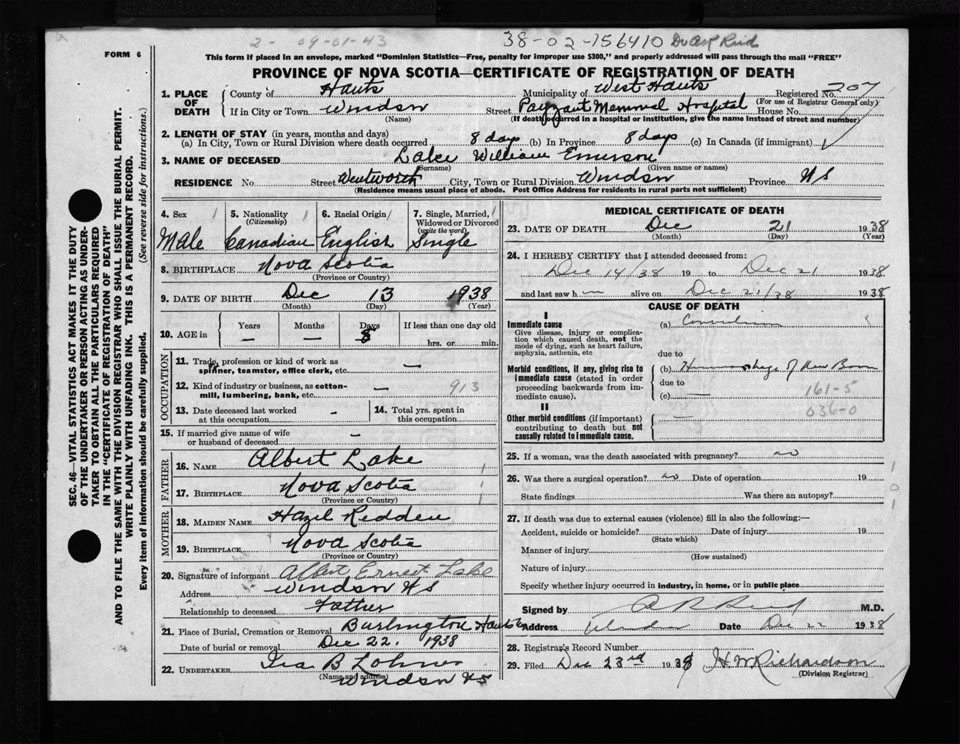 2- 09-01-43 38-02-156410 Dr Asp Reid
FORM 6
This form if placed in an envelope, marked "Dominion Statistics—Free, penalty for improper use $300," and properly addressed will pass through the mail "FREE"
PROVINCE OF NOVA SCOTIA—CERTIFICATE OF REGISTRATION OF DEATH
SEC. 46—VITAL STATISTICS ACT MAKES IT THE DUTY
OF THE UNDERTAKER OR PERSON ACTING AS UNDER-
TAKER TO OBTAIN ALL THE PARTICULARS REQUIRED
IN THE "CERTIFICATE OF REGISTRATION OF DEATH"
AND TO FILE THE SAME WITH THE DIVISION REGISTRAR WHO SHALL ISSUE THE BURIAL PERMIT.
WRITE PLAINLY WITH UNFADING INK. THIS IS A PERMANENT RECORD.
Every item of information should be carefully supplied. (See reverse side for instructions.)
1. PLACE OF DEATH County of Hants Municipality of West Hants Registered No. 207
(For use of Registrar General only)
If in City or Town Windsor Street Payzant Memorial Hospital House No.
(Name) (If death occurred in a hospital or institution, give the name instead of street and number)
2. LENGTH OF STAY (in years, months and days)
(a) In City, Town or Rural Division where death occurred 8 days (b) In Province 8 days (c) In Canada (if immigrant)
3. NAME OF DECEASED Lake William Emerson
(Surname) (Given name or names)
RESIDENCE No. Street Wentworth City, Town or Rural Division Windsor Province NS
(Residence means usual place of abode. Post Office Address for residents in rural parts not sufficient)
4. Sex 5. Nationality (Citizenship) 6. Racial Origin 7. Single, Married, Widowed or Divorced (write the word)
Male Canadian English Single
8. BIRTHPLACE Nova Scotia
(Province or Country)
9. DATE OF BIRTH Dec 13 1938
(Month) (Day) (Year)
10. AGE in Years Months Days If less than one day
— — 8 hrs. or min.
OCCUPATION
11. Trade, profession or kind of work as
spinner, teamster, office clerk, etc. —
12. Kind of industry or business, as cotton-
mill, lumbering, bank, etc. — 913
13. Date deceased last worked at this occupation — 14. Total yrs. spent in this occupation —
15. If married give name of wife
or husband of deceased —
FATHER
16. NAME Albert Lake
17. BIRTHPLACE Nova Scotia
(Province or Country)
MOTHER
18. MAIDEN NAME Hazel Redden
19. BIRTHPLACE Nova Scotia
(Province or Country)
20. Signature of informant Albert Ernest Lake
Address Windsor NS
Relationship to deceased Father
21. Place of Burial, Cremation or Removal Burlington Hants
Date of burial or removal Dec 22, 1938
22. UNDERTAKER Ira B Lohnes
(Name and address)
Windsor NS
MEDICAL CERTIFICATE OF DEATH
23. DATE OF DEATH Dec 21 1938
(Month) (Day) (Year)
24. I HEREBY CERTIFY that I attended deceased from:
Dec 14/38 19 to Dec 21 1938
and last saw h alive on Dec 21/38 1938
CAUSE OF DEATH
I
Immediate cause (a)
Give disease, injury or complication which caused death, not the mode of dying, such as heart failure, asphyxia, asthenia, etc
due to
Morbid conditions, if any, giving rise to immediate cause (stated in order proceeding backwards from immediate cause). (b) Hemorrhage of New Born
due to
(c) — 161-5
036-0
II
Other morbid conditions (if important) contributing to death but not causally related to immediate cause. —
25. If a woman, was the death associated with pregnancy? no
26. Was there a surgical operation? no Date of operation 19
State findings Was there an autopsy?
27. If death was due to external causes (violence) fill in also the following:—
Accident, suicide or homicide? Date of injury 19
(State which)
Manner of injury
(How sustained)
Nature of injury
Specify whether injury occurred in industry, in home, or in public place
Signed by Reid M.D.
Address Windsor Date Dec 22 1938
28. Registrar's Record Number
29. Filed Dec 23rd 1938 H. W. Richardson
(Division Registrar)